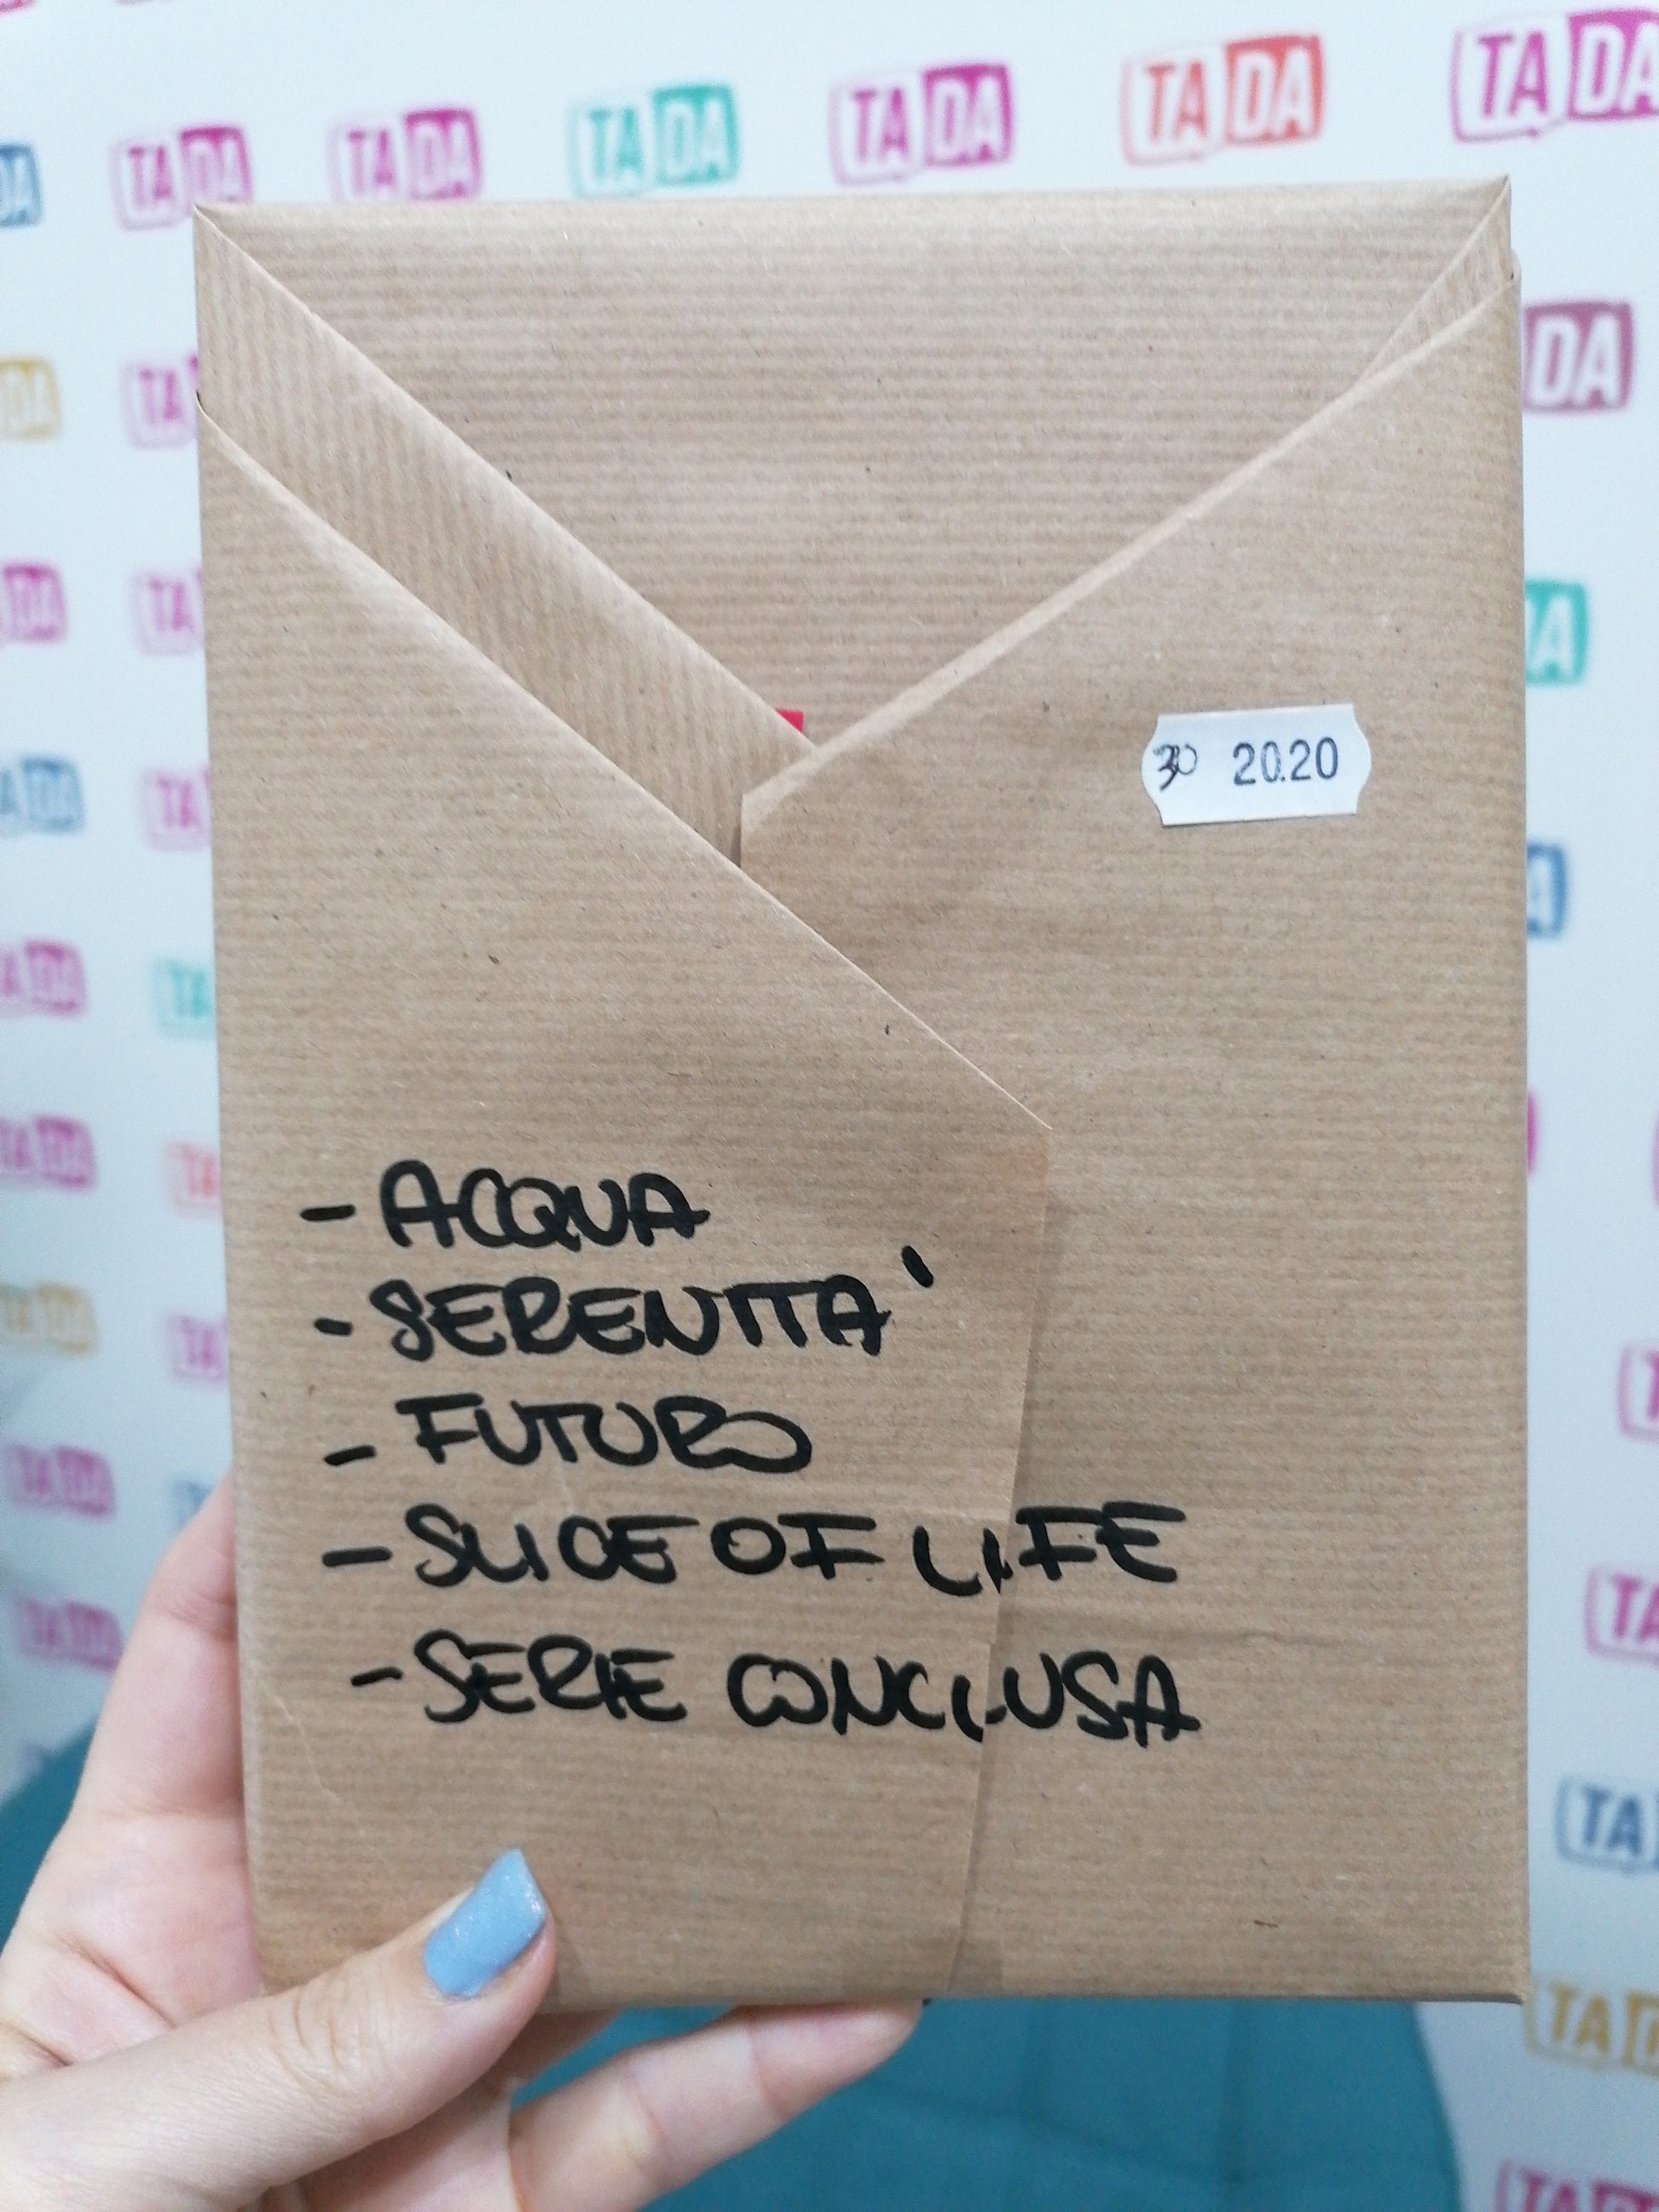 TA DA TA DA TA DA TA DA TA DA TA DA
20.20
- ACQUA
- SERENITA'
- FUTURO
- SLICE OF LIFE
- SERIE CONCLUSA